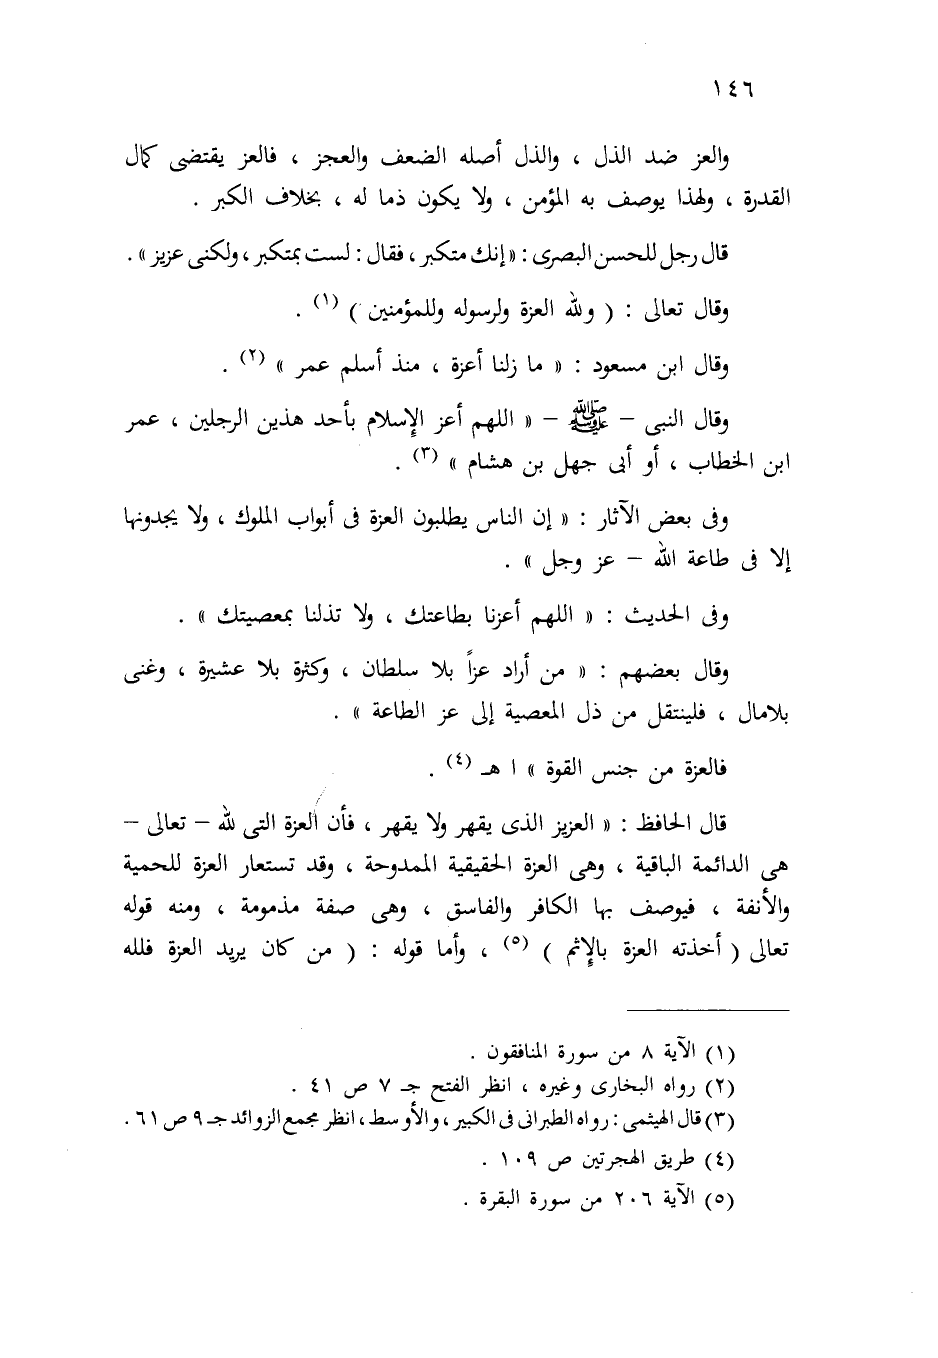 ١٤٦
والعز ضد الذل ، والذل أصله الضعف والعجز ، فالعز يقتضى كمال
القدرة ، ولهذا يوصف به المؤمن ، ولا يكون ذما له ، بخلاف الكبر .
قال رجل للحسن البصرى : « إنك متكبر ، فقال : لست بمتكبر ، ولكنى عزيز » .
وقال تعالى : ( ولله العزة ولرسوله وللمؤمنين ) (١) .
وقال ابن مسعود : « ما زلنا أعزة ، منذ أسلم عمر » (٢) .
وقال النبى – ﷺ – « اللهم أعز الإسلام بأحد هذين الرجلين ، عمر
ابن الخطاب ، أو أبى جهل بن هشام » (٣) .
وفى بعض الآثار : « إن الناس يطلبون العزة فى أبواب الملوك ، ولا يجدونها
إلا فى طاعة الله – عز وجل » .
وفى الحديث : « اللهم أعزنا بطاعتك ، ولا تذلنا بمعصيتك » .
وقال بعضهم : « من أراد عزاً بلا سلطان ، وكثرة بلا عشيرة ، وغنى
بلامال ، فلينتقل من ذل المعصية إلى عز الطاعة » .
فالعزة من جنس القوة » ا هـ (٤) .
قال الحافظ : « العزيز الذى يقهر ولا يقهر ، فأن العزة التى لله – تعالى –
هى الدائمة الباقية ، وهى العزة الحقيقية الممدوحة ، وقد تستعار العزة للحمية
والأنفة ، فيوصف بها الكافر والفاسق ، وهى صفة مذمومة ، ومنه قوله
تعالى ( أخذته العزة بالإثم ) (٥) ، وأما قوله : ( من كان يريد العزة فلله
(١) الآية ٨ من سورة المنافقون .
(٢) رواه البخارى وغيره ، انظر الفتح جـ ٧ ص ٤١ .
(٣) قال الهيثمى : رواه الطبرانى فى الكبير ، والأوسط ، انظر مجمع الزوائد جـ ٩ ص ٦١ .
(٤) طريق الهجرتين ص ١٠٩ .
(٥) الآية ٢٠٦ من سورة البقرة .